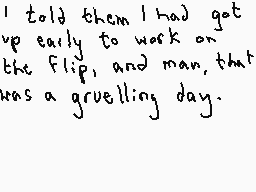 I told them I had got
up early to work on
the flip, and man, that
was a gruelling day.